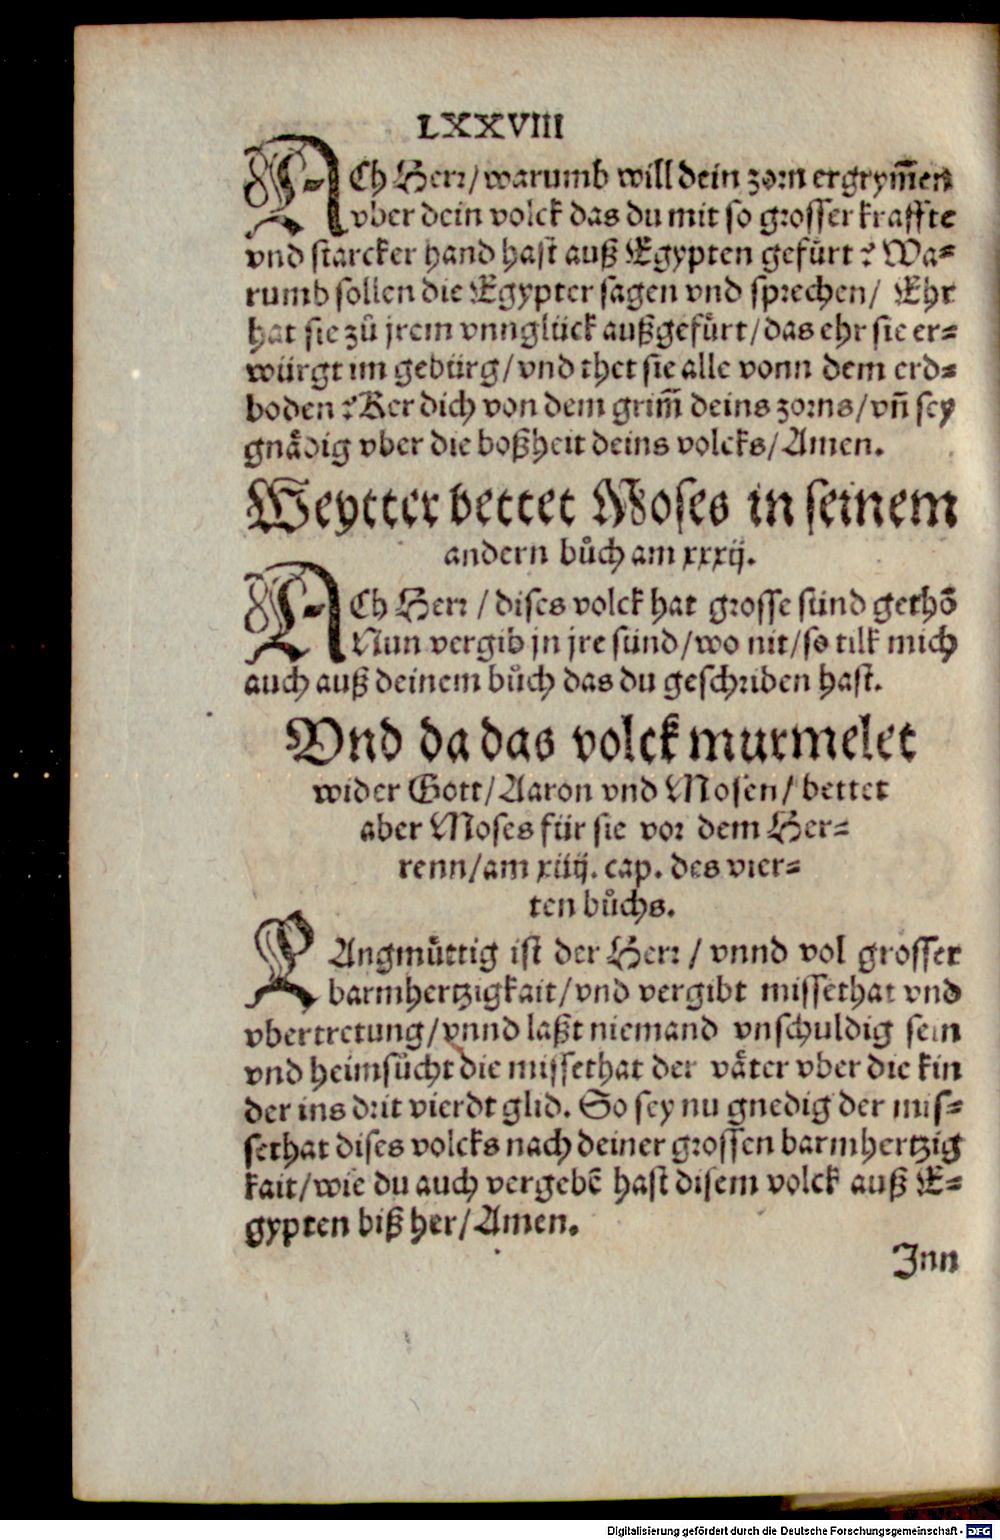 LXXVIII
ACh Herr/warumb will dein zorn ergrym̃en
vber dein volck das du mit so grosser kraffte
vnd starcker hand hast auß Egypten gefuͤrt? Wa-
rumb sollen die Egypter sagen vnd sprechen/ Ehr
hat sie zuͦ jrem vnnglück außgefuͤrt/das ehr sie er-
würgt im gebürg/vnd thet sie alle vonn dem erd-
boden? Ker dich von dem grim̃ deins zorns/vñ sey
gnaͤdig vber die boßheit deins volcks/Amen.
Weytter bettet Moses in seinem
andern buͦch am xxxij.
ACh Herr/dises volck hat grosse sünd gethõ
Nun vergib jn jre sünd/wo nit/so tilk mich
auch auß deinem buͦch das du geschriben hast.
Vnd da das volck murmelet
wider Gott/Aaron vnd Mosen/bettet
aber Moses für sie vor dem Her-
renn/am xiiij. cap. des vier-
ten buͦchs.
LAngmuͤttig ist der Herr/vnnd vol grosser
barmhertzigkait/vnd vergibt missethat vnd
vbertretung/vnnd laßt niemand vnschuldig sein
vnd heimsücht die missethat der vaͤter vber die kin
der ins drit vierdt glid. So sey nu gnedig der mis-
sethat dises volcks nach deiner grossen barmhertzig
kait/wie du auch vergebẽ hast disem volck auß E-
gypten biß her/Amen.
Inn
Digitalisierung gefördert durch die Deutsche Forschungsgemeinschaft - DFG